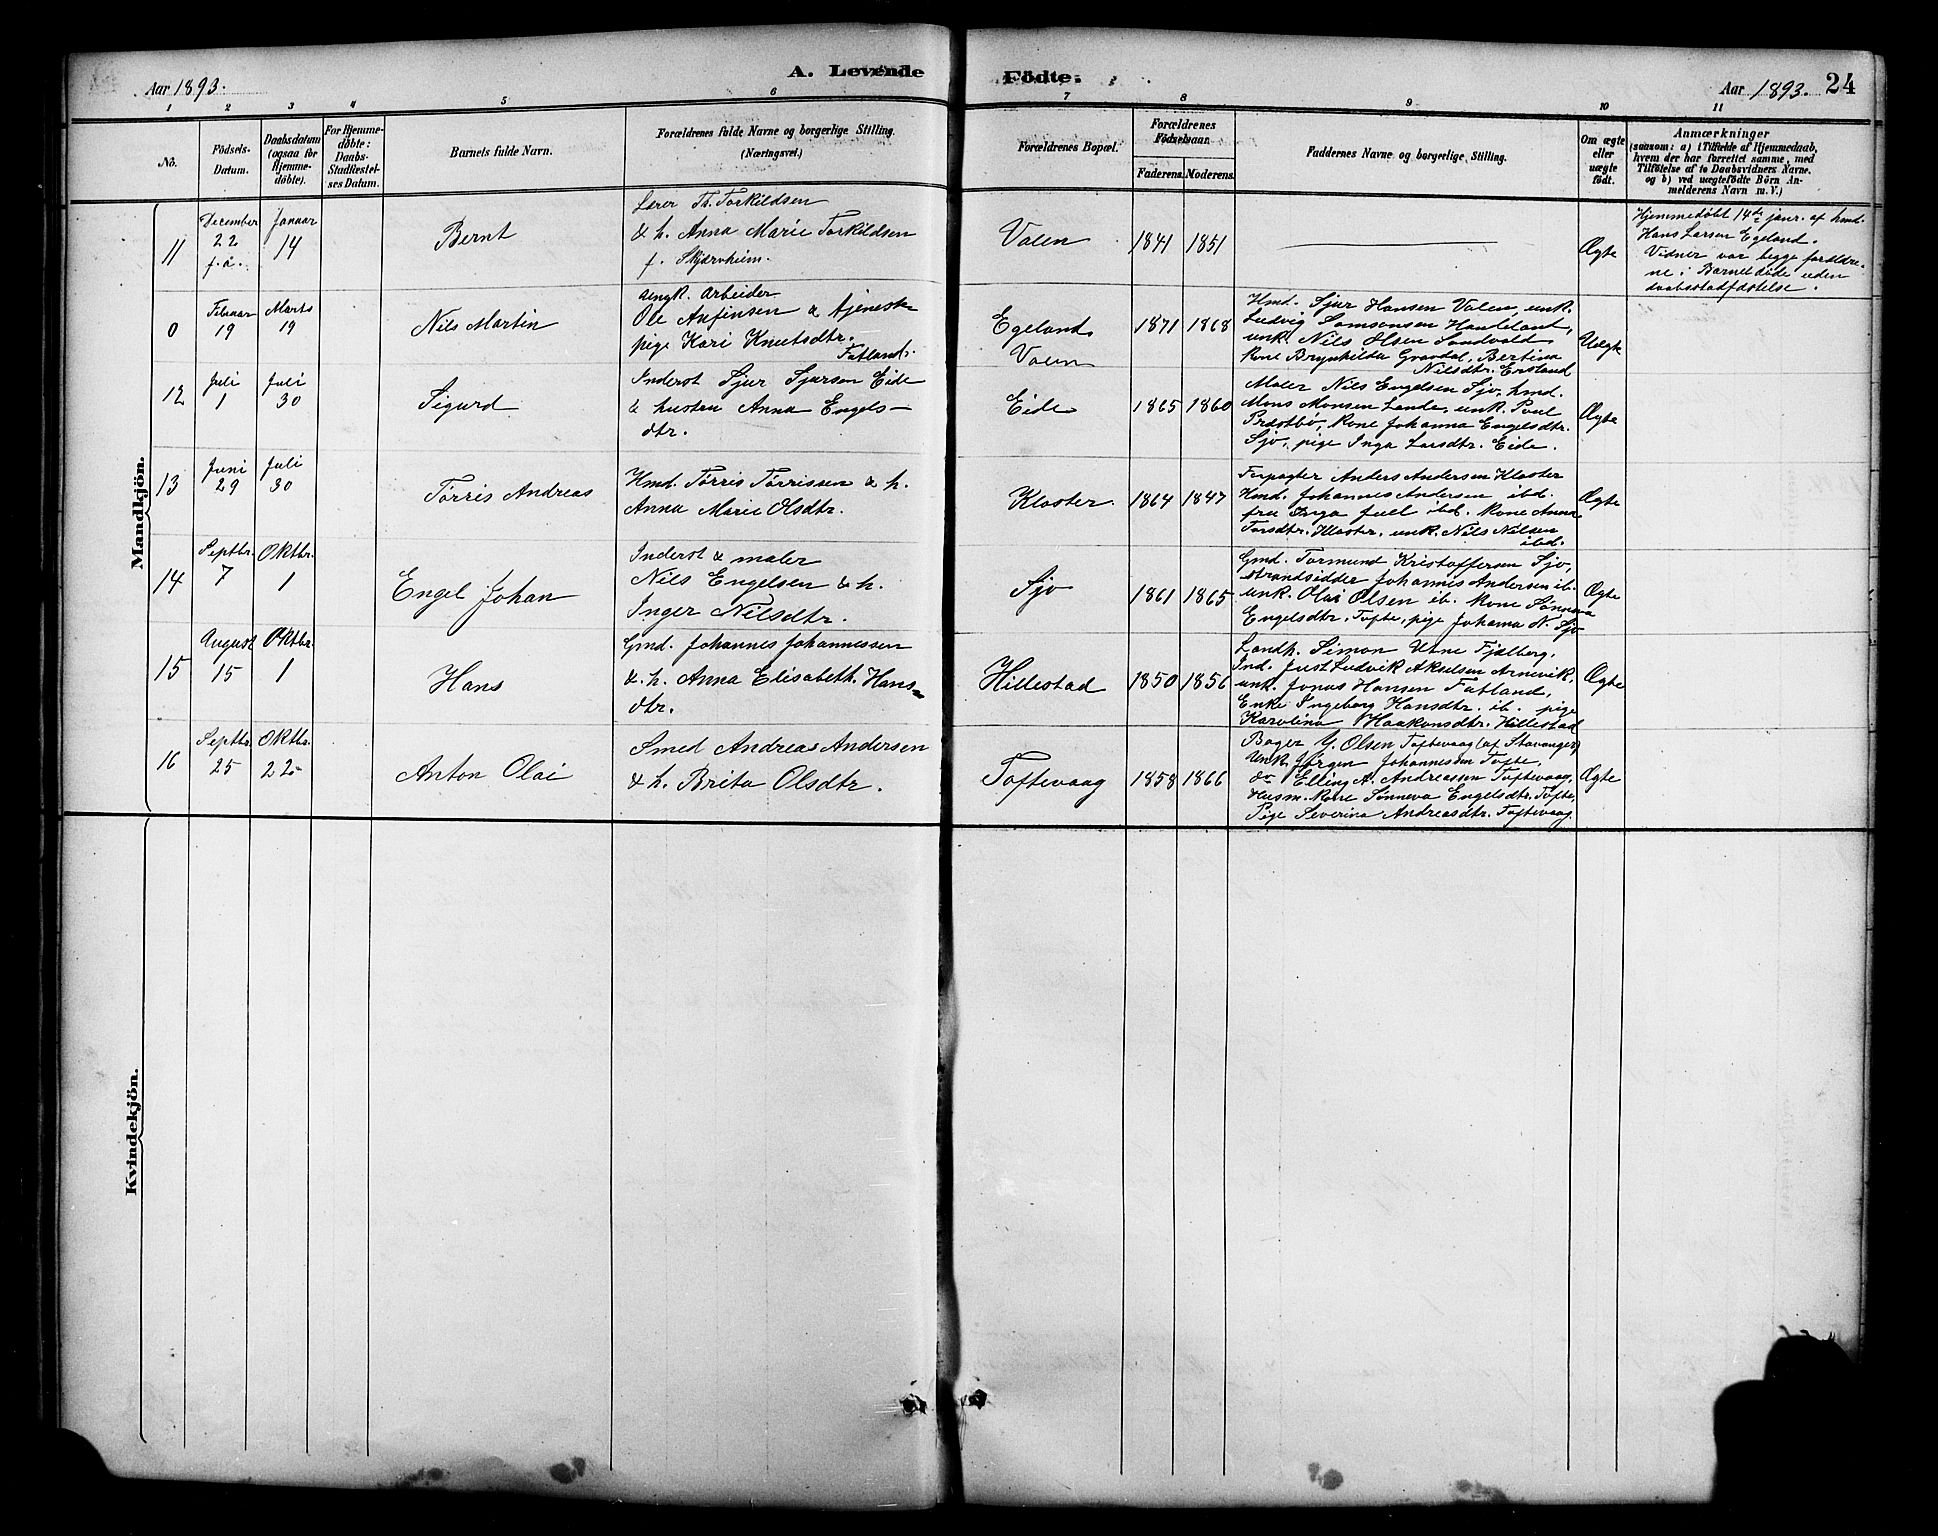 Aar 1893.
A. Levende
Födte.
Aar 1893. 24
1 2 3 4 5 6 7 8 9 10 11
No.
Födsels-
Datum.
Daabsdatum
(ogsaa for
Hjemme-
döbte).
For Hjemme-
döbte:
Daabs-
Stadfæstel-
ses Datum.
Barnets fulde Navn.
Forældrenes fulde Navne og borgerlige Stilling.
(Næringsvei.)
Forældrenes Bopæl.
Forældrenes
Födselsaar.
Faderens. Moderens.
Faddernes Navne og borgerlige Stilling.
Om ægte
eller
uægte
födt.
Anmærkninger
(saasom: a) i Tilfælde af Hjemmedaab,
hvem der har forrettet samme, med
Tilföielse af to Daabsvidners Navne.
og b) ved uægtefödte Börn An-
melderens Navn m. V.)
Mandkjön.
11
December
22
f. a.
Januar
14
Bernt
Lærer Th. Torkildsen
& h. Anna Marie Torkildsen
f. Skjærvheim.
Valen
1841 1851
Ægte
Hjemmedøbt 14de janr. af hmd.
Hans Larsen Egeland.
Vidner var begge forældre-
ne. Barnet døde uden
daabsstadfæstelse.
0
Februar
19
Marts
19
Nils Martin
Ungk. Arbeider
Ole Anfinsen & tjeneste
pige Kari Knutsdtr.
Fatland.
Egeland
Valen
1871 1868
Hmd. Sjur Hansen Valen, unk.
Ludvig Samsonsen Handeland,
unk. Nils Olsen Sandvold
Kone Brynhilda Gravdal, Bertina
Nilsdtr. Ersland
Uægte
12
Juli
1
Juli
30
Sigurd
Inderst Sjur Sjursen Eide
& hustru Anna Engels-
dtr.
Eide
1865 1860
Maler Nils Engelsen Sjo, hmd.
Mons Monsen Lande, unk. Poul
Præstbø, Kone Johanna Engelsdtr.
Sjo, pige Inga Larsdtr. Eide.
Ægte
13
Juni
29
Juli
30
Tørris Andreas
Hmd. Tørris Tørrissen & h.
Anna Marie Olsdtr.
Kloster.
1864 1847
Forpagter Anders Andersen Kloster
Hmd. Johannes Andersen ibd.
fru Inga Juel ibd. Kone Anna
Torsdtr. Kloster, unk. Nils Nilsen
ibd.
Ægte
14
Septbr.
7
Oktbr.
1
Engel Johan
Inderst & maler
Nils Engelsen & h.
Inger Nilsdtr.
Sjo
1861 1865
Gmd. Tormund Kristoffersen Sjo,
strandsidder Johannes Andersen ib.
unk. Olai Olsen ib. Kone Sønneva
Engelsdtr. Tofte, pige Johanna N. Sjo
Ægte
15
August
15
Oktbr.
1
Hans
Gmd. Johannes Johannessen
& h. Anna Elisabeth Hans-
dtr.
Hillestad
1850 1856
Landh. Simon Utne Fjelberg,
Ind. Just Ludvik Akselsen Arnevik,
unk. Jonas Hansen Fatland,
Enke Ingeborg Hansdtr. ib. pige
Karolina Haakonsdtr. Hillestad
Ægte
16
Septbr.
25
Oktbr.
22
Anton Olai
Smed Andreas Andersen
& h. Brita Olsdtr.
Toftevaag
1858 1866
Bager Y. Olsen Toftevaag (af Stavanger)
Unk. Jørgen Johannesen Tofte,
do Elling A. Andreassen Toftevaag,
Husm. Kone Sønneva Engelsdtr. Tofte,
Pige Severina Andreasdtr. Toftevaag.
Ægte
Kvindekjön.